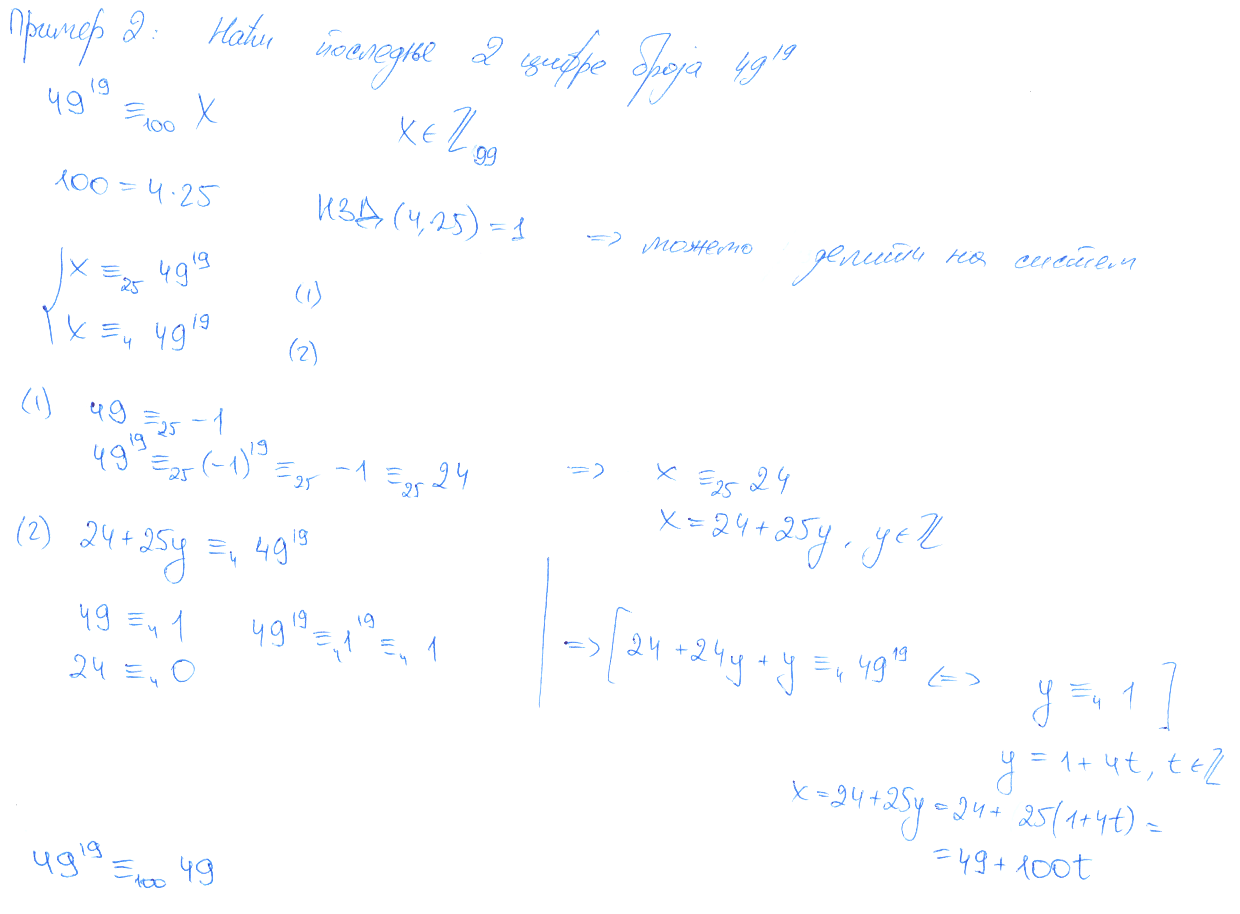 Пример 2: Наћи последње 2 цифре броја 49^19
49^19 ≡_100 X
x ∈ ℤ_99
100 = 4·25
НЗД (4,25) = 1 => можемо делити на систем
{ x ≡_25 49^19 (1)
x ≡_4 49^19 (2)
(1) 49 ≡_25 -1
49^19 ≡_25 (-1)^19 ≡_25 -1 ≡_25 24 => x ≡_25 24
x = 24 + 25y, y ∈ ℤ
(2) 24 + 25y ≡_4 49^19
49 ≡_4 1 49^19 ≡_4 1^19 ≡_4 1
24 ≡_4 0
=> [ 24 + 24y + y ≡_4 49^19 <=> y ≡_4 1 ]
y = 1 + 4t, t ∈ ℤ
x = 24 + 25y = 24 + 25(1+4t) =
= 49 + 100t
49^19 ≡_100 49